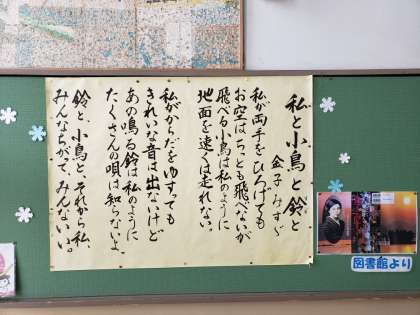 私と小鳥と鈴と
金子みすゞ
私が両手をひろげても
お空はちっとも飛べないが
飛べる小鳥は私のように
地面を速くは走れない。
私がからだをゆすっても
きれいな音は出ないけど
あの鳴る鈴は私のように
たくさんの唄は知らないよ
鈴と、小鳥と、それから私、
みんなちがって、みんないい。
図書館より